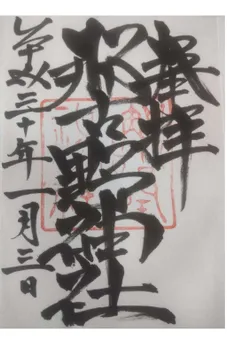 奉拝
那古野神社
平成三十年一月三日